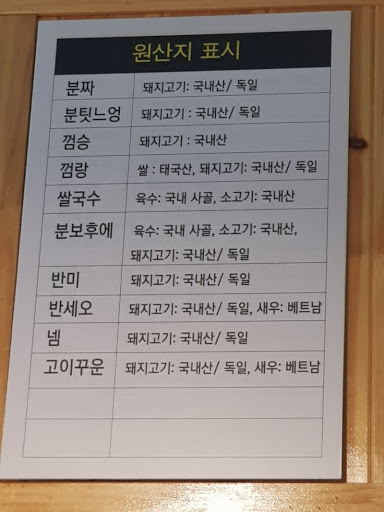 원산지 표시
분짜 돼지고기: 국내산/ 독일
분팃느엉 돼지고기 : 국내산/ 독일
껌승 돼지고기 : 국내산
껌랑 쌀 : 태국산, 돼지고기: 국내산/ 독일
쌀국수 육수: 국내 사골, 소고기: 국내산
분보후에 육수: 국내 사골, 소고기: 국내산,
돼지고기: 국내산/ 독일
반미 돼지고기: 국내산/ 독일
반세오 돼지고기: 국내산/ 독일, 새우: 베트남
넴 돼지고기: 국내산/ 독일
고이꾸온 돼지고기: 국내산/ 독일, 새우: 베트남